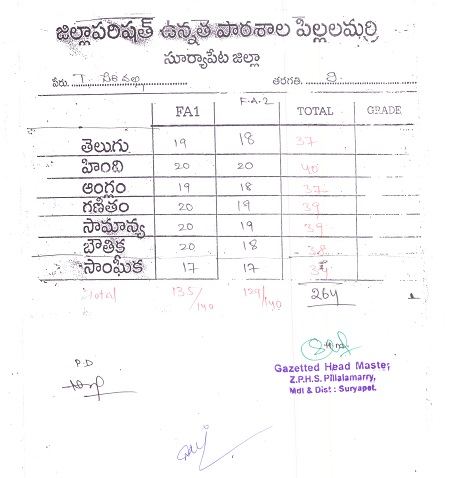 జిల్లాపరిషత్ ఉన్నత పాఠశాల పిల్లలమర్రి
సూర్యాపేట జిల్లా
పేరు. T. తరగతి.
FA1 F.A.2 TOTAL GRADE
తెలుగు 19 18 37
హింది 20 20 40
ఆంగ్లం 19 18 37
గణితం 20 19 39
సామాన్య 20 19 39
భౌతిక 20 18 38
సాంఘీక 17 17
Total 135/140 129/140 264
P.D
Gazetted Head Master,
Z.P.H.S. Pillalamarry,
Mdl & Dist : Suryapet.